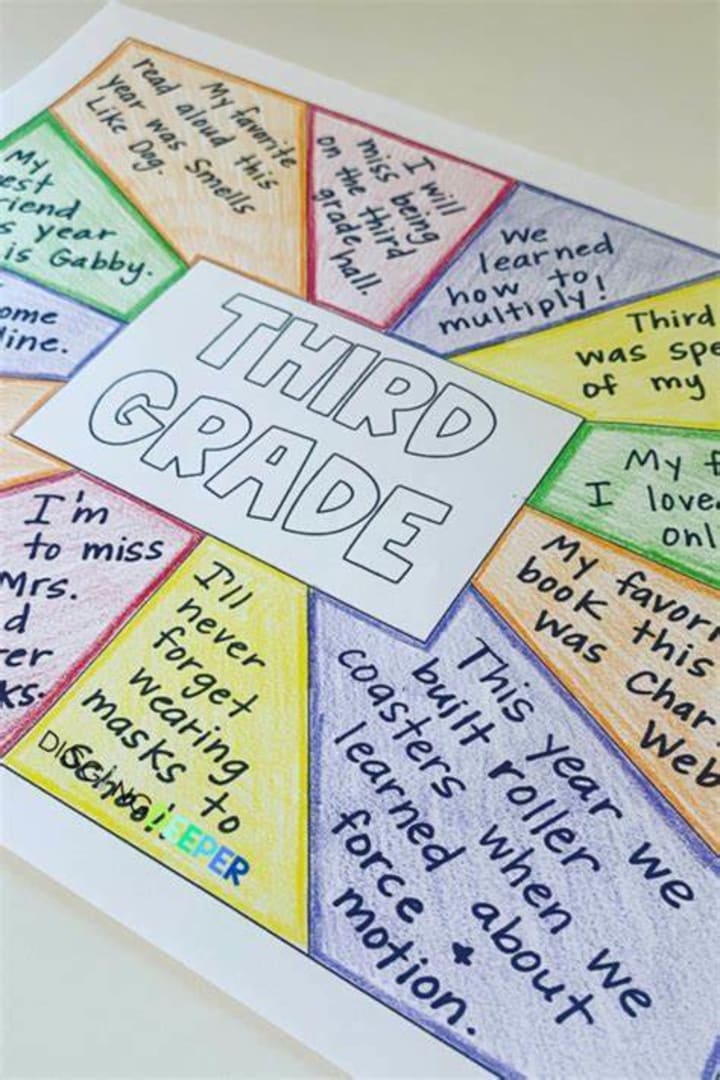 My favorite
read aloud this
year was Smells
Like Dog.
I will
miss being
on the third
grade hall.
We
learned
how to
multiply!
Third
was
of my
My
I
My
year
is Gabby.
THIRD
GRADE
I'm
to miss
Mrs.
I'll
never
forget
wearing
masks to
school!
My
book this
was
This year we
built roller
coasters when we
learned about
force +
motion.